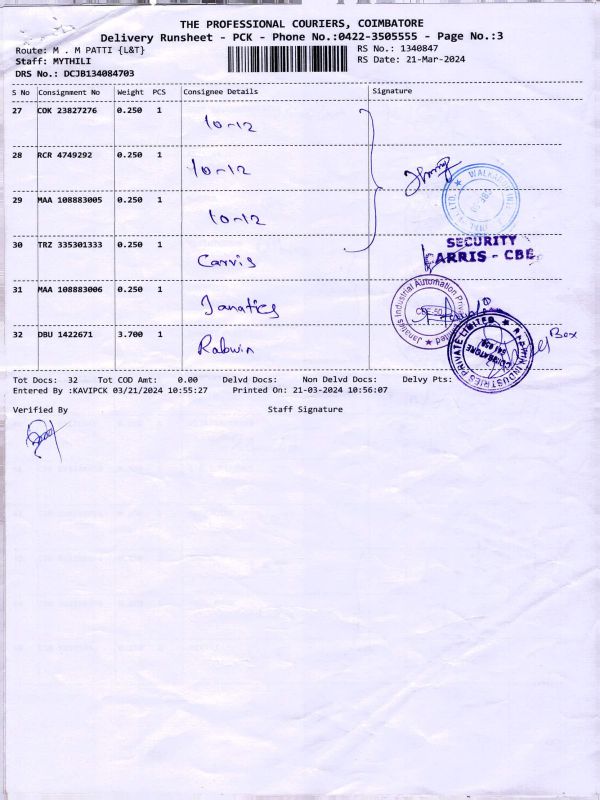 THE PROFESSIONAL COURIERS, COIMBATORE
Delivery Runsheet - PCK - Phone No.:0422-3505555 - Page No.:3
Route: M . M PATTI {L&T}
RS No.: 1340847
Staff: MYTHILI
RS Date: 21-Mar-2024
DRS No.: DCJB134084703
S No Consignment No Weight PCS Consignee Details Signature
27 COK 23827276 0.250 1 10-12
28 RCR 4749292 0.250 1 10-12
29 MAA 108883005 0.250 1 10-12
30 TRZ 335301333 0.250 1 Carris
SECURITY
CARRIS - CBE
31 MAA 108883006 0.250 1 Janatics
Janatics Industrial Automation
32 DBU 1422671 3.700 1 Rabwin
INDUSTRIES PRIVATE LIMITED
COIMBATORE
Box
Tot Docs: 32 Tot COD Amt: 0.00 Delvd Docs: Non Delvd Docs: Delvy Pts:
Entered By :KAVIPCK 03/21/2024 10:55:27 Printed On: 21-03-2024 10:56:07
Verified By Staff Signature